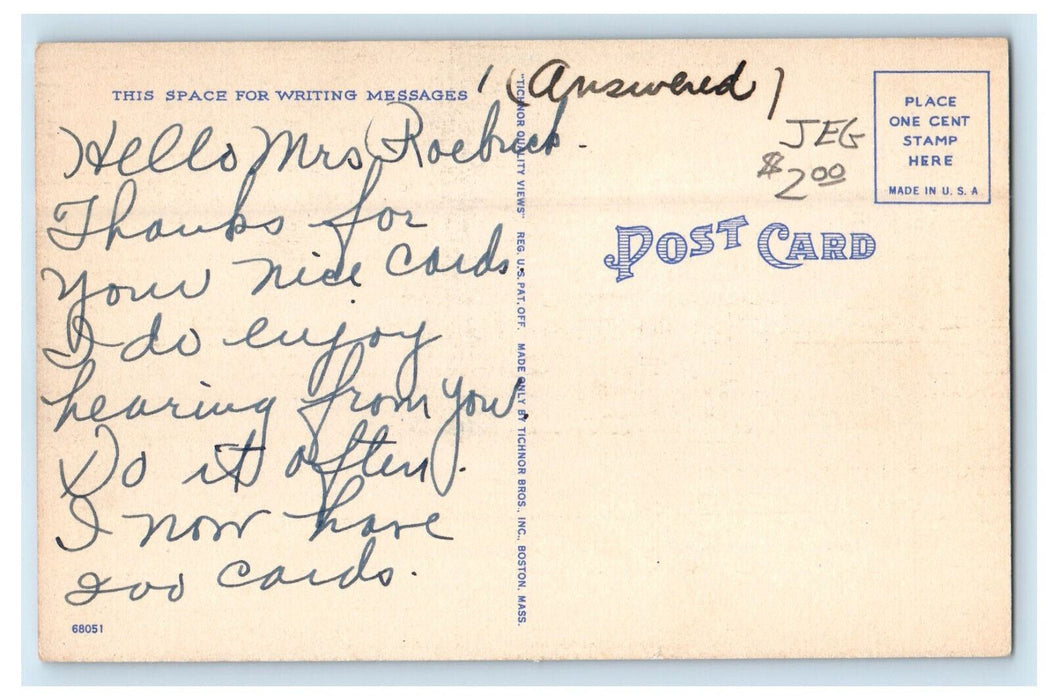 THIS SPACE FOR WRITING MESSAGES
(Answered)
Hello Mrs Roebuck.
Thanks for
your nice cards.
I do enjoy
hearing from you.
Do it often.
I now have
200 cards.
68051
"TICHNOR QUALITY VIEWS" REG. U.S. PAT. OFF. MADE ONLY BY TICHNOR BROS., INC., BOSTON, MASS.
JEG
$2.00
PLACE
ONE CENT
STAMP
HERE
MADE IN U.S.A.
POST CARD